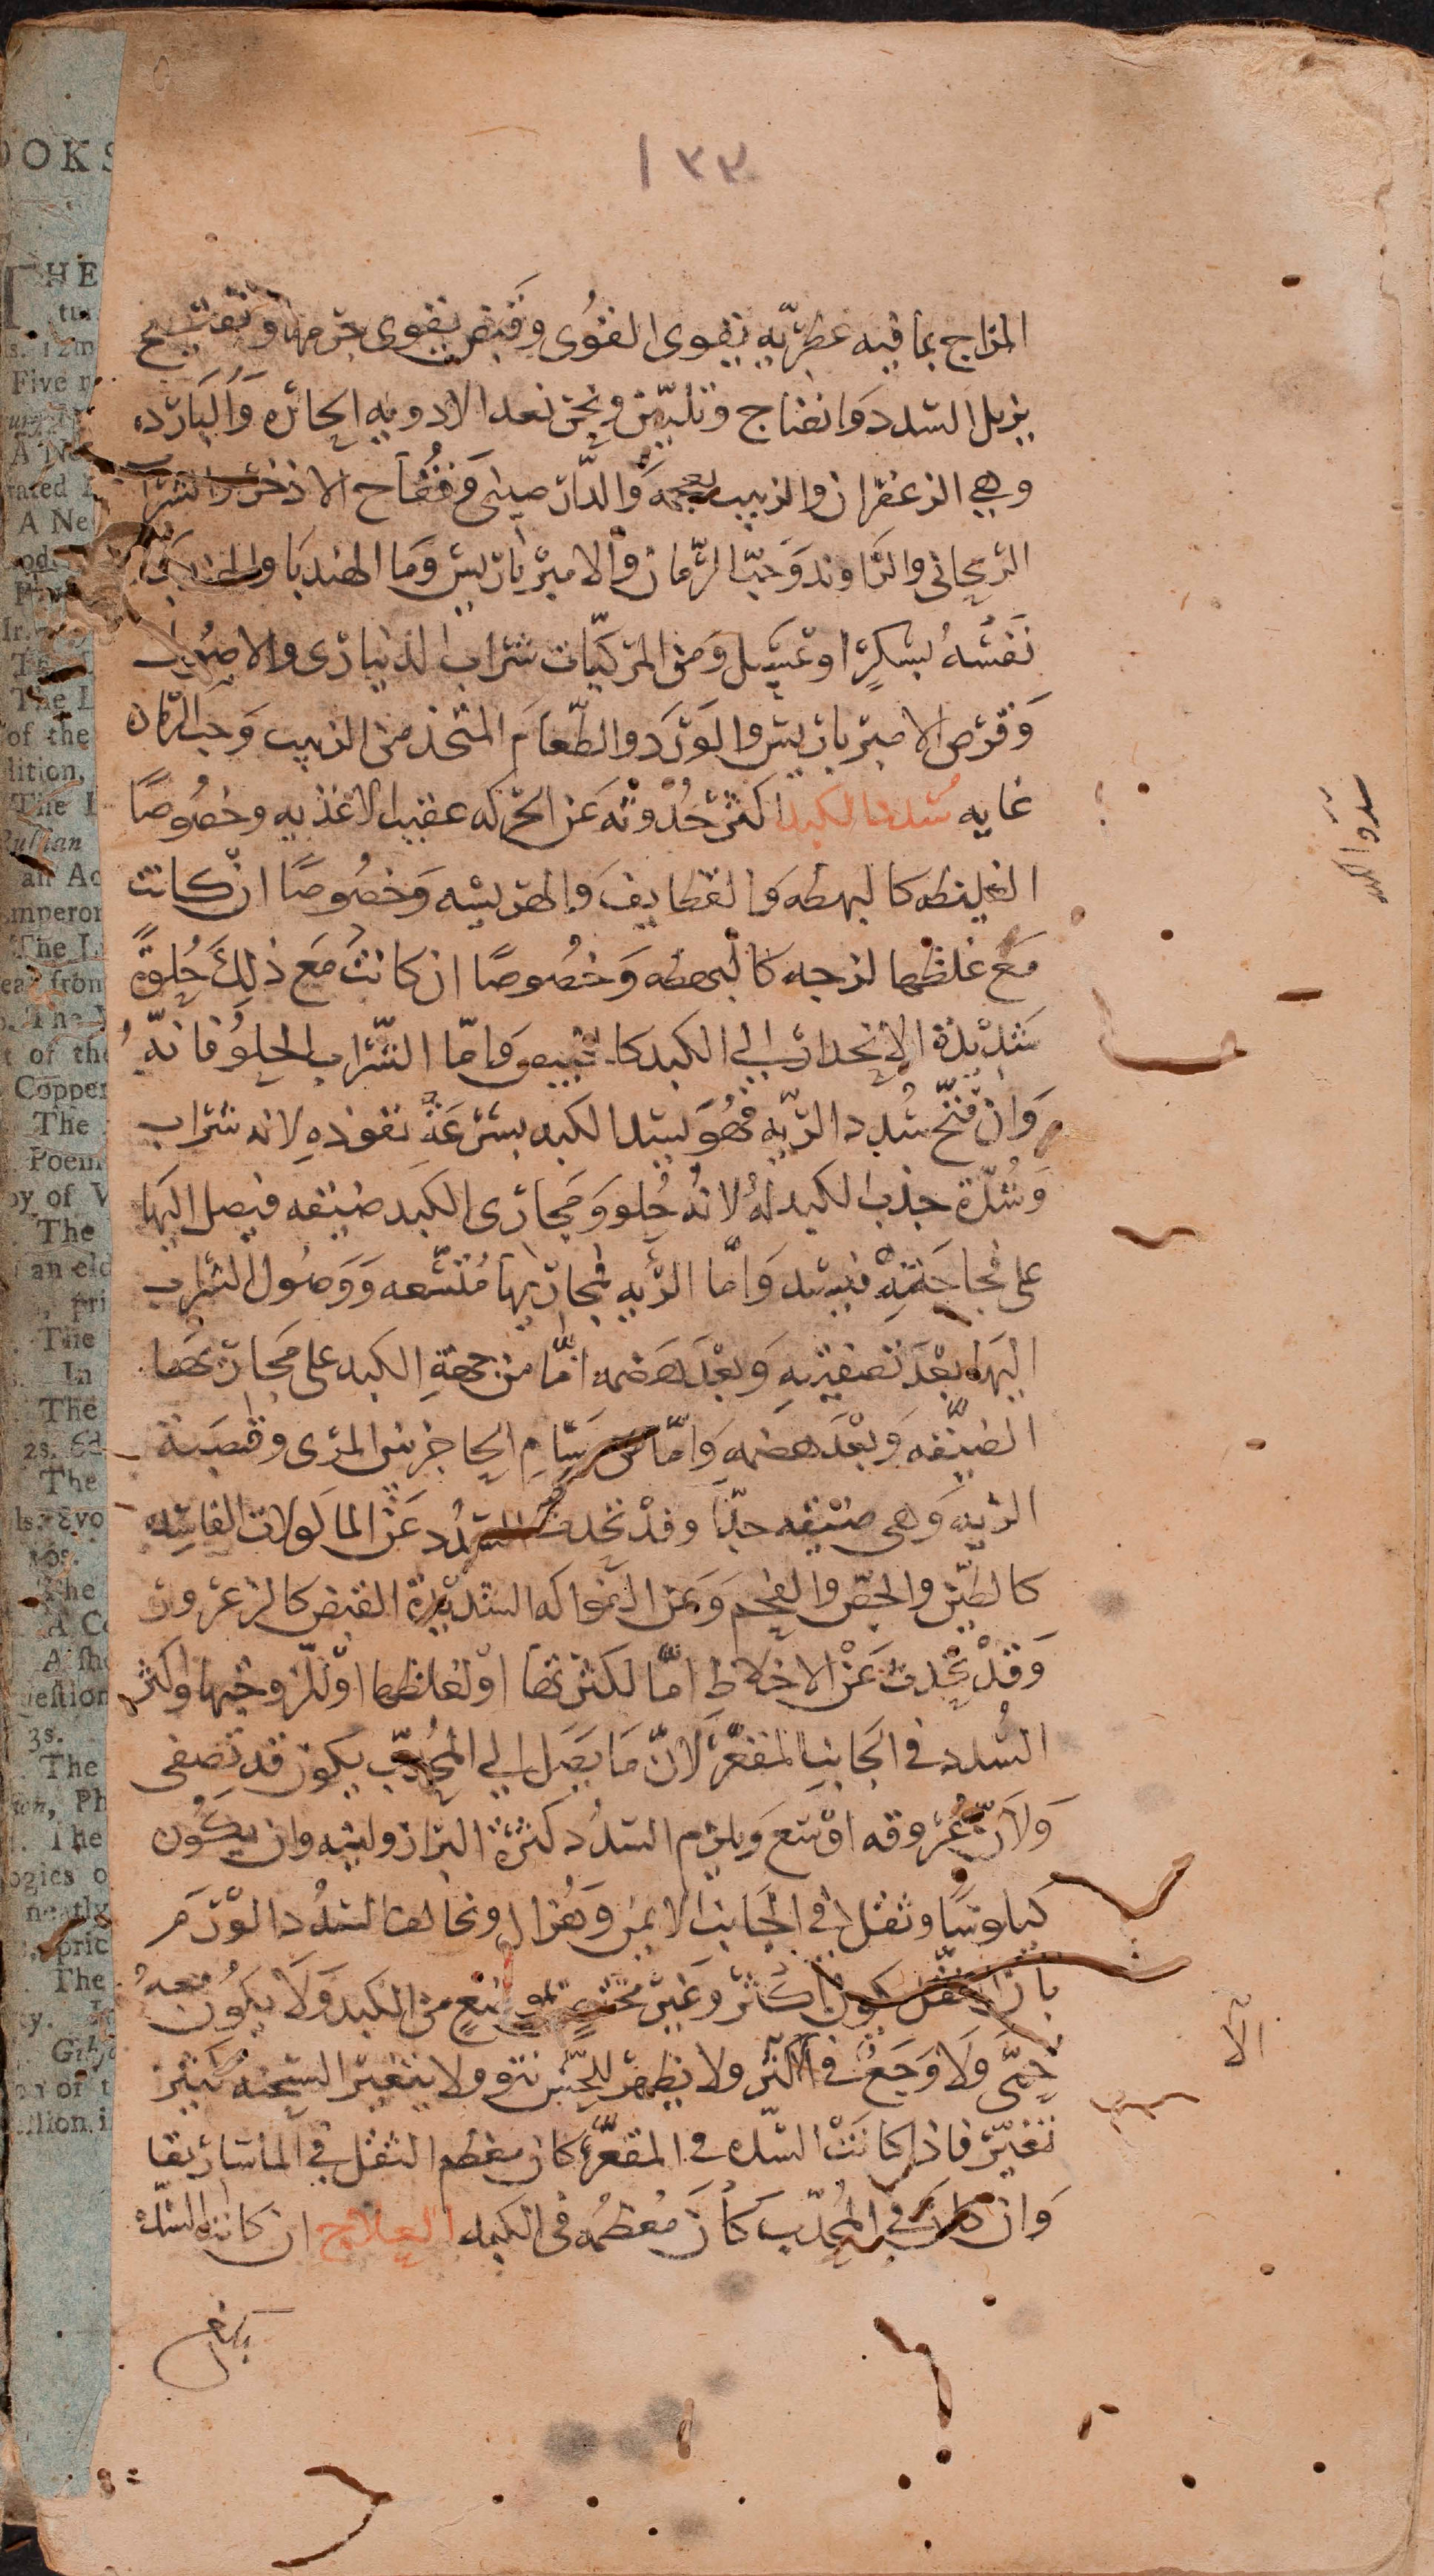 ١٣٣
المزاج بما فيه عطريه يقوى القوى وقبض يقوى جرمها وتفتيح
يزيل السدد وانضاج وتليين ونحن نعد الادويه الحاره والبارده
وهي الزعفران والزبيب بعجمه والدار صينى وفقاح الاذخر والشراب
الريحانى والراوند وحب الرمان والامير باريس وما الهندبا
نفسه بسكر او عسل ومن المركبات شراب الدنيارى والاصول
وقرص الامير باريس والورد والطعام المتخذ من الزبيب وحب الرمان
غايه سدد الكبد اكثر حدوثه عن الحركه عقيب الاغذيه وخصوصًا
الغليظه كالبهطه والقطايف والهريسه وخصوصًا ان كانت
مع غلظها لزجه كالبهطه وخصوصًا ان كانت مع ذلك حلوةً
شديدة الانحدار الى الكبد كالخبيص واما الشراب الحلو فانه
وان فتح سدد الريه فهو يسد الكبد بسرعة نفوذه لانه شراب
وشدة جذب الكبد له لانه حلو ومجارى الكبد ضيقه فيصل اليها
على فجاجته فيسد واما الريه فمجاريها متسعه ووصول الشراب
اليها بعد تصفيته وبعد هضمه اما من جهة الكبد على مجاريها
الضيقه وبعد هضمه واما من مسام الحاجز بين المرى وقصبة
الريه وهى ضيقه جدا وقد تحدث السدد عن الماكولات الفاسده
كالطين والجص والفحم وعن الفواكه الشديدة القبض كالزعرور
وقد تحدث عن الاخلاط اما لكثرتها او لغلظها او للزوجتها واكثر
السدد فى الجانب المقعر لان ما يصل الي المحدب يكون قد تصفى
ولان عروقه اوسع ويلزم السدد كثرة البراز ولينه وان يكون
كيلوسًا وثقل فى الجانب الايمن وهزال وتخالف السدد الورم
بان الثقل يكون اكثر وغير مختص بموضع من الكبد ولا يكون معه
حمى ولا وجع فى الاكثر ولا يظهر للحس نتو ولا يتغير السحنه كثير
تغير فاذا كانت السده فى المقعر كان معظم الثقل فى الماساريقا
وان كان فى المحدب كان معظمه فى الكبد العلاج ان كانت السده